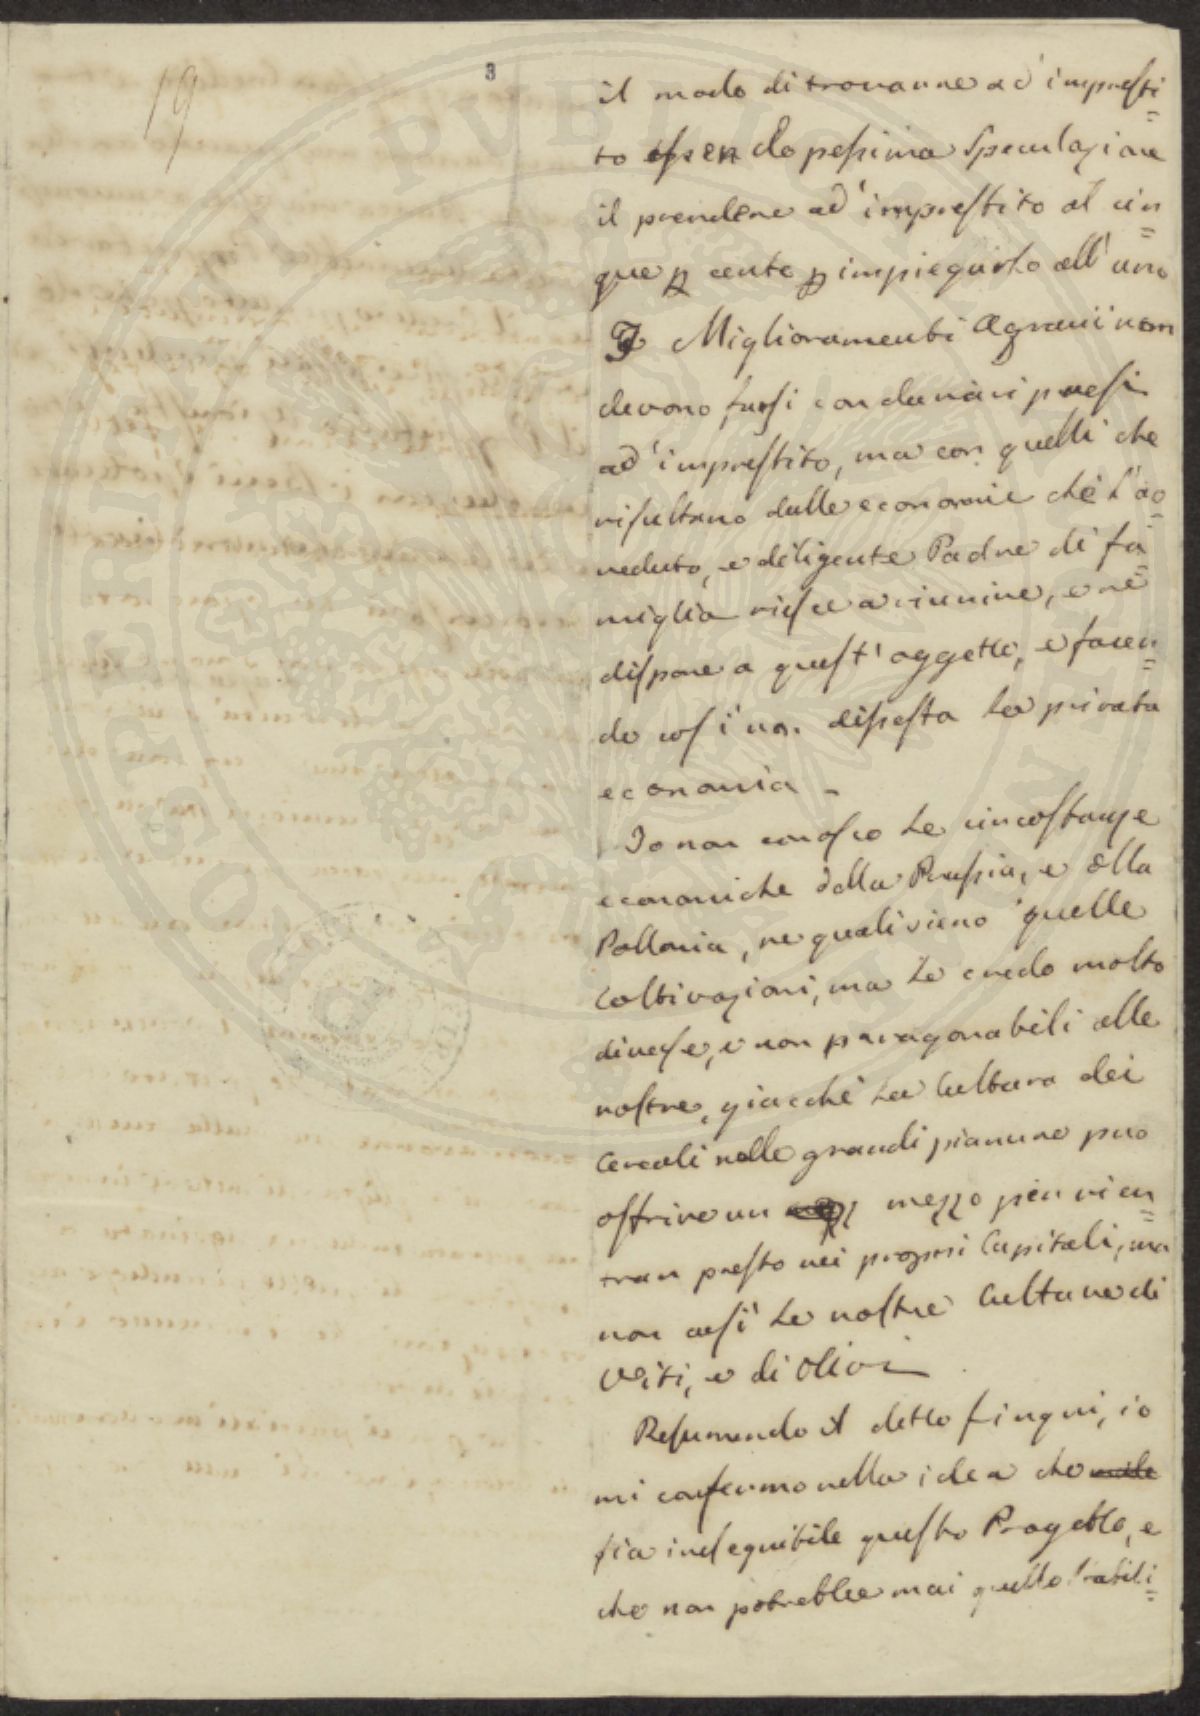 19
3
il modo di trovarne ad' impresti=
to essendo pessima Speculazione
il prendere ad' imprestito al cin=
que p cento p impiegarlo all' uno
I Miglioramenti Agrarii non
devono farsi con danari presi
ad' imprestito, ma con quelli che
risultano dalle economie che l'av=
veduto, e diligente Padre di fa=
miglia riesce a riunire, e ne
dispone a quest' oggetto, e facen=
do così non dissesta la privata
economia -
Io non conosco le circostanze
economiche della Prussia, e della
Pollonia, ne quali sieno quelle
Coltivazioni, ma le credo molto
diverse, e non paragonabili alle
nostre, giacchè la Cultura dei
Cereali nelle grandi pianure può
offrire un mezzo per rien=
trar presto nei proprii Capitali, ma
non così le nostre Culture di
Viti, e di Olivi
Resumendo il detto fin qui, io
mi confermo nella idea che
sia ineseguibile questo Progetto, e
che non potrebbe mai quello Stabili=